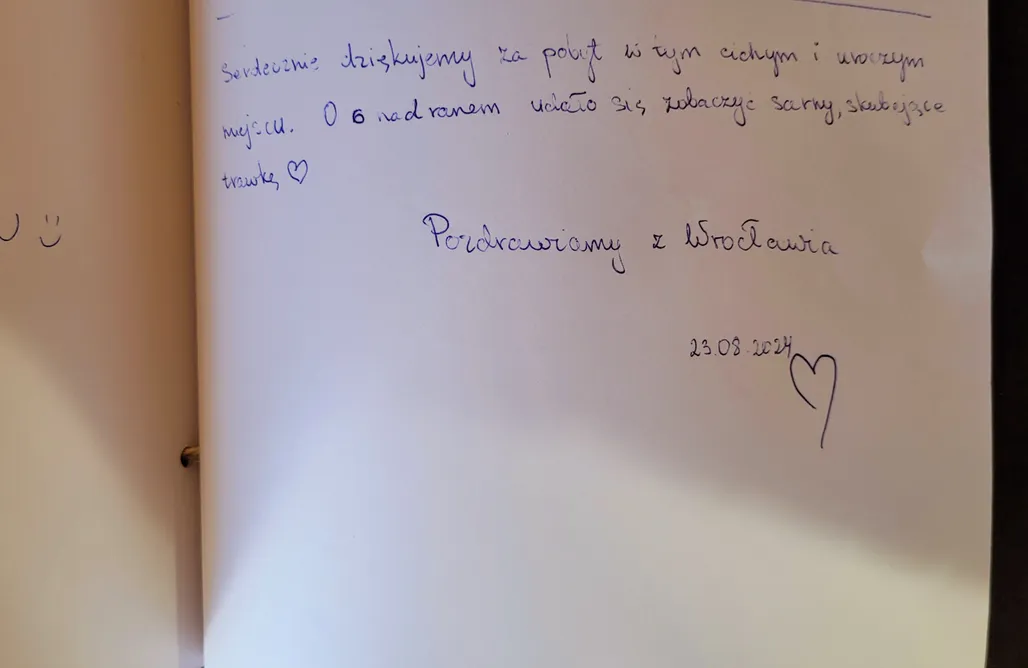 Serdecznie dziękujemy za pobyt w tym cichym i uroczym
miejscu. O 6 nad ranem udało się zobaczyć sarny, skubiące
trawkę ♡
Pozdrawiamy z Wrocławia
23.08.2024